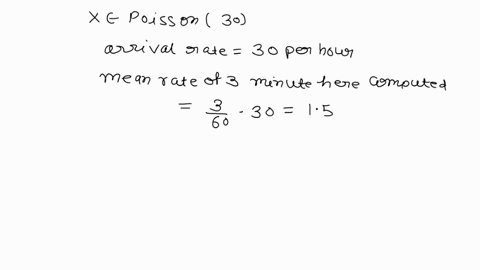 X ∈ Poisson ( 30)
arrival rate = 30 per hour
mean rate of 3 minute here computed
= 3/60 · 30 = 1.5